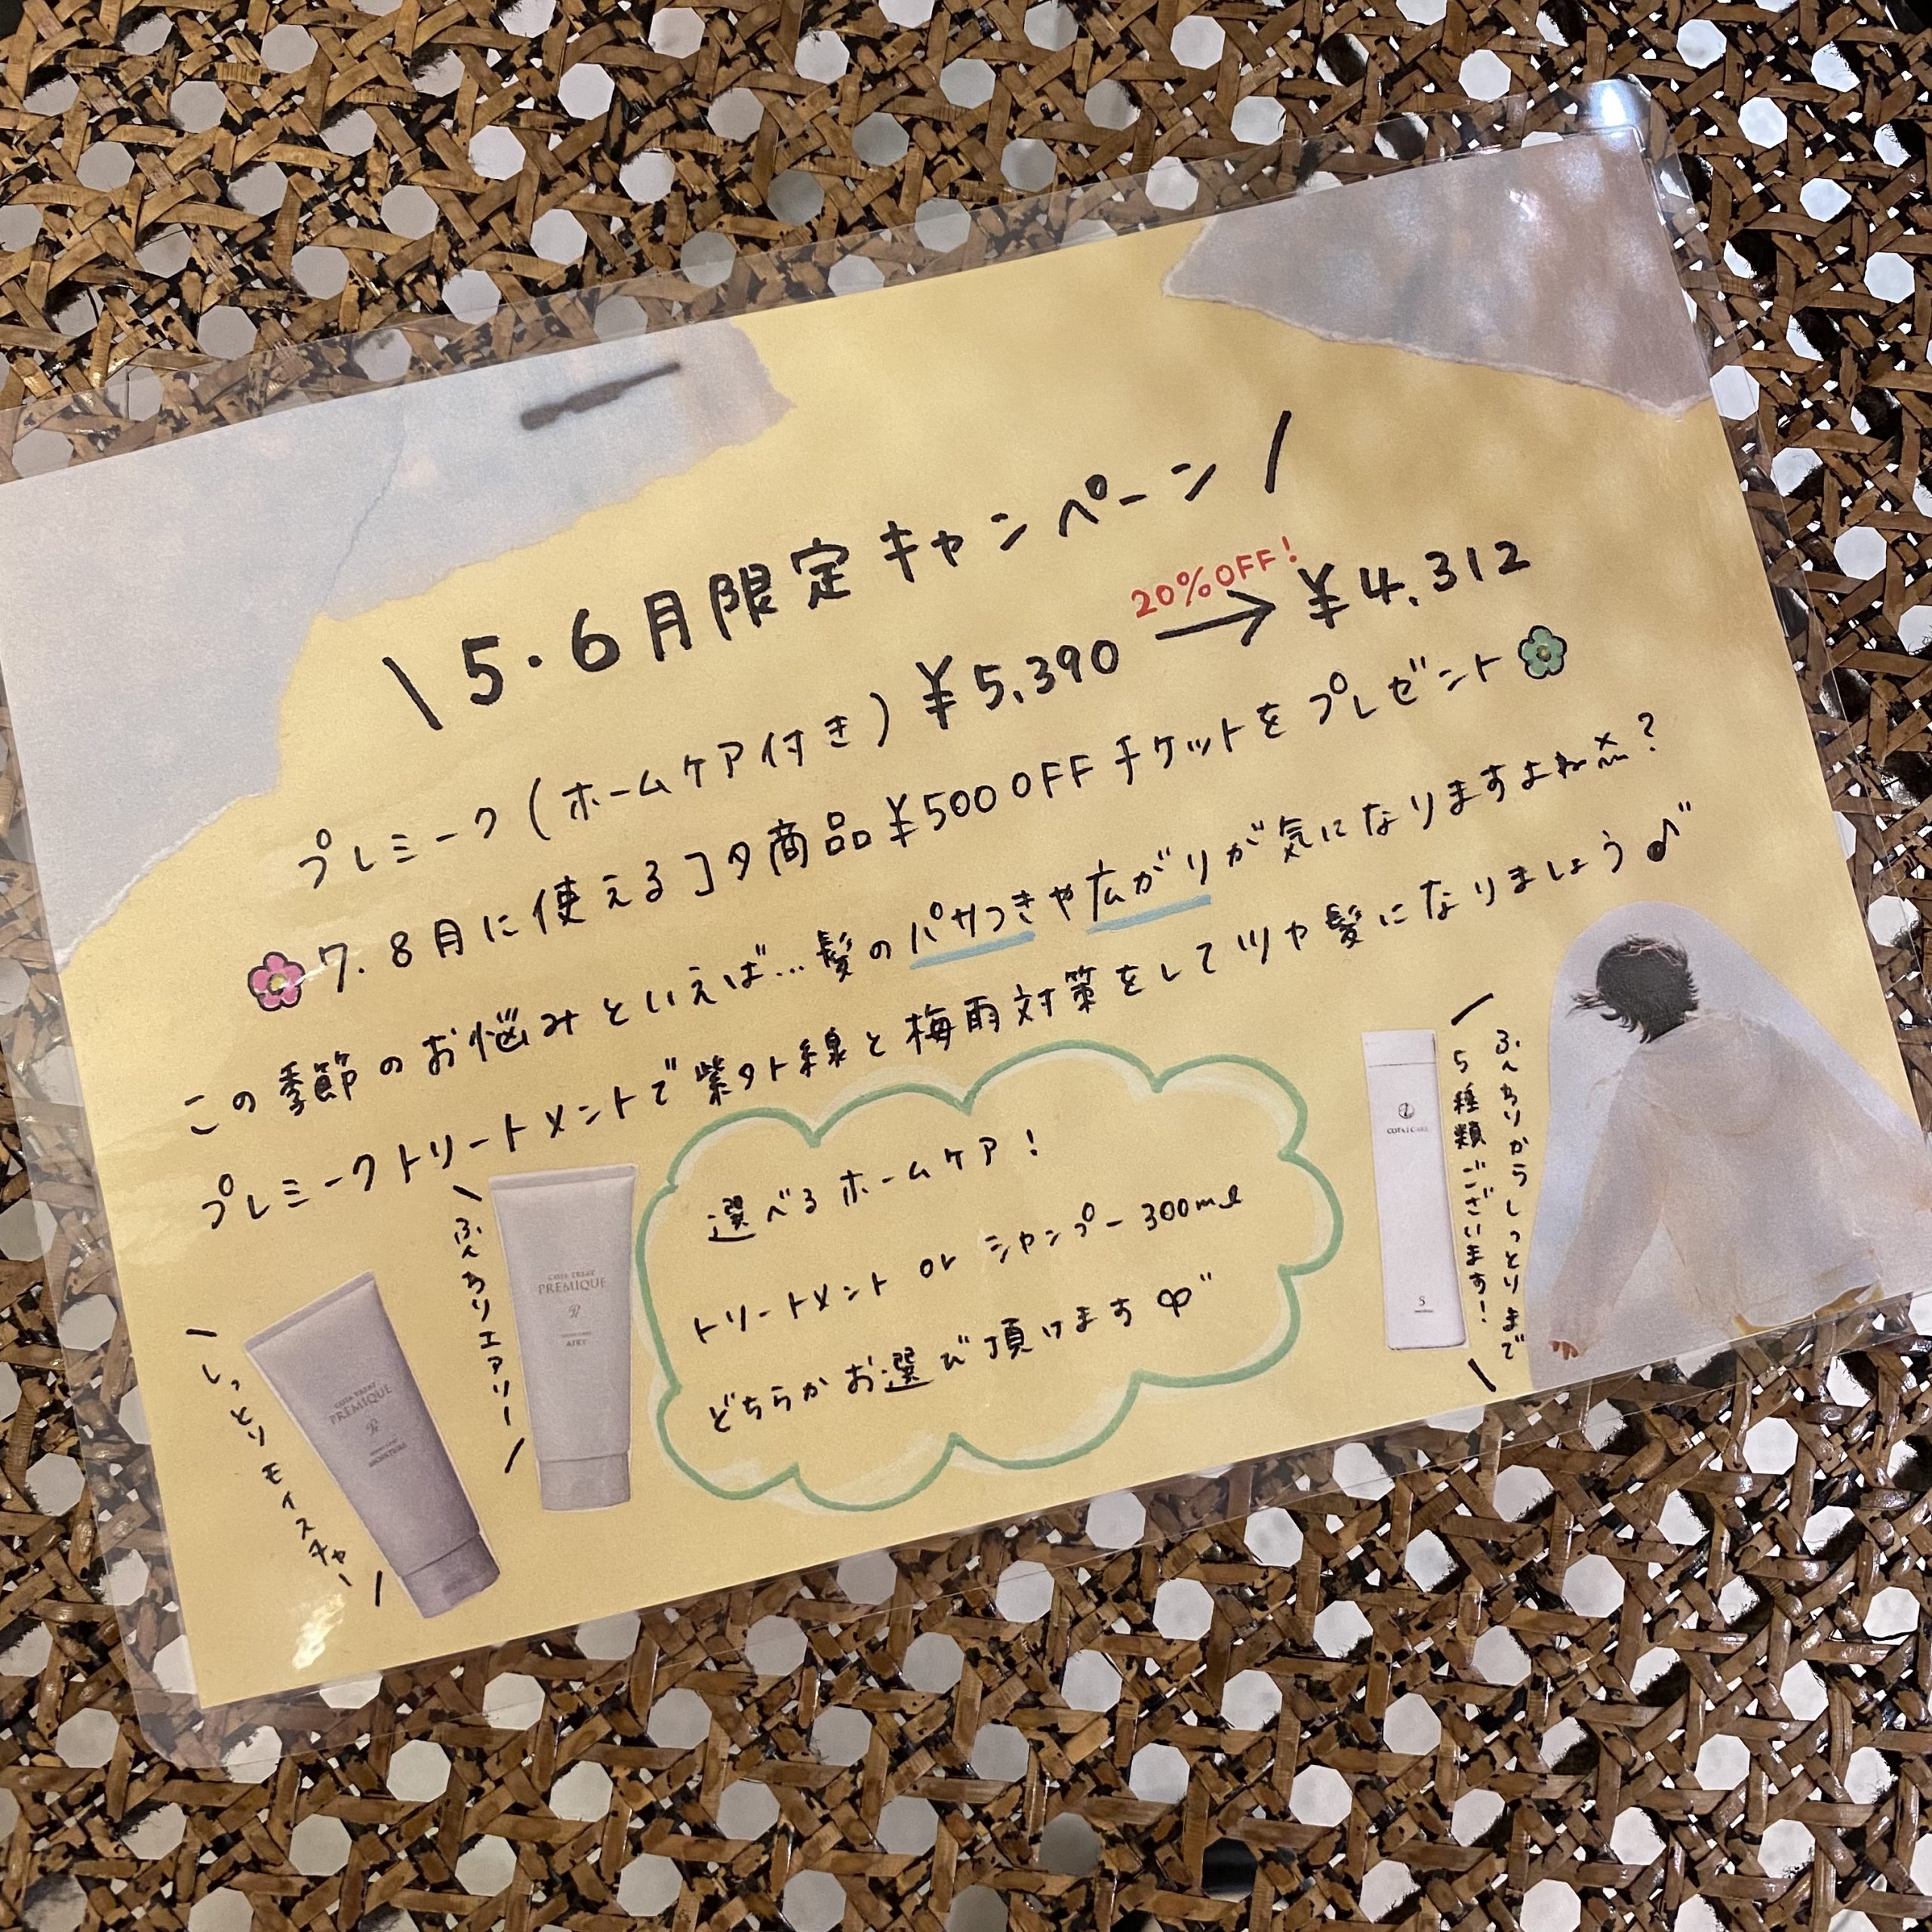 \ 5・6月限定キャンペーン /
プレミーク(ホームケア付き) ¥5,390 → ¥4,312
20%OFF!
7.8月に使えるコタ商品¥500OFFチケットをプレゼント
この季節のお悩みといえば…髪のパサつきや広がりが気になりますよね?
プレミークトリートメントで紫外線と梅雨対策をしてツヤ髪になりましょう♪
選べるホームケア!
トリートメント or シャンプー 300ml
どちらかお選び頂けます
\ しっとりモイスチャー /
COTA TREAT
PREMIQUE
\ ふんわりエアリー /
COTA TREAT
PREMIQUE
AIRY
COTA I CARE
5
ふんわりからしっとりまで
5種類ございます!